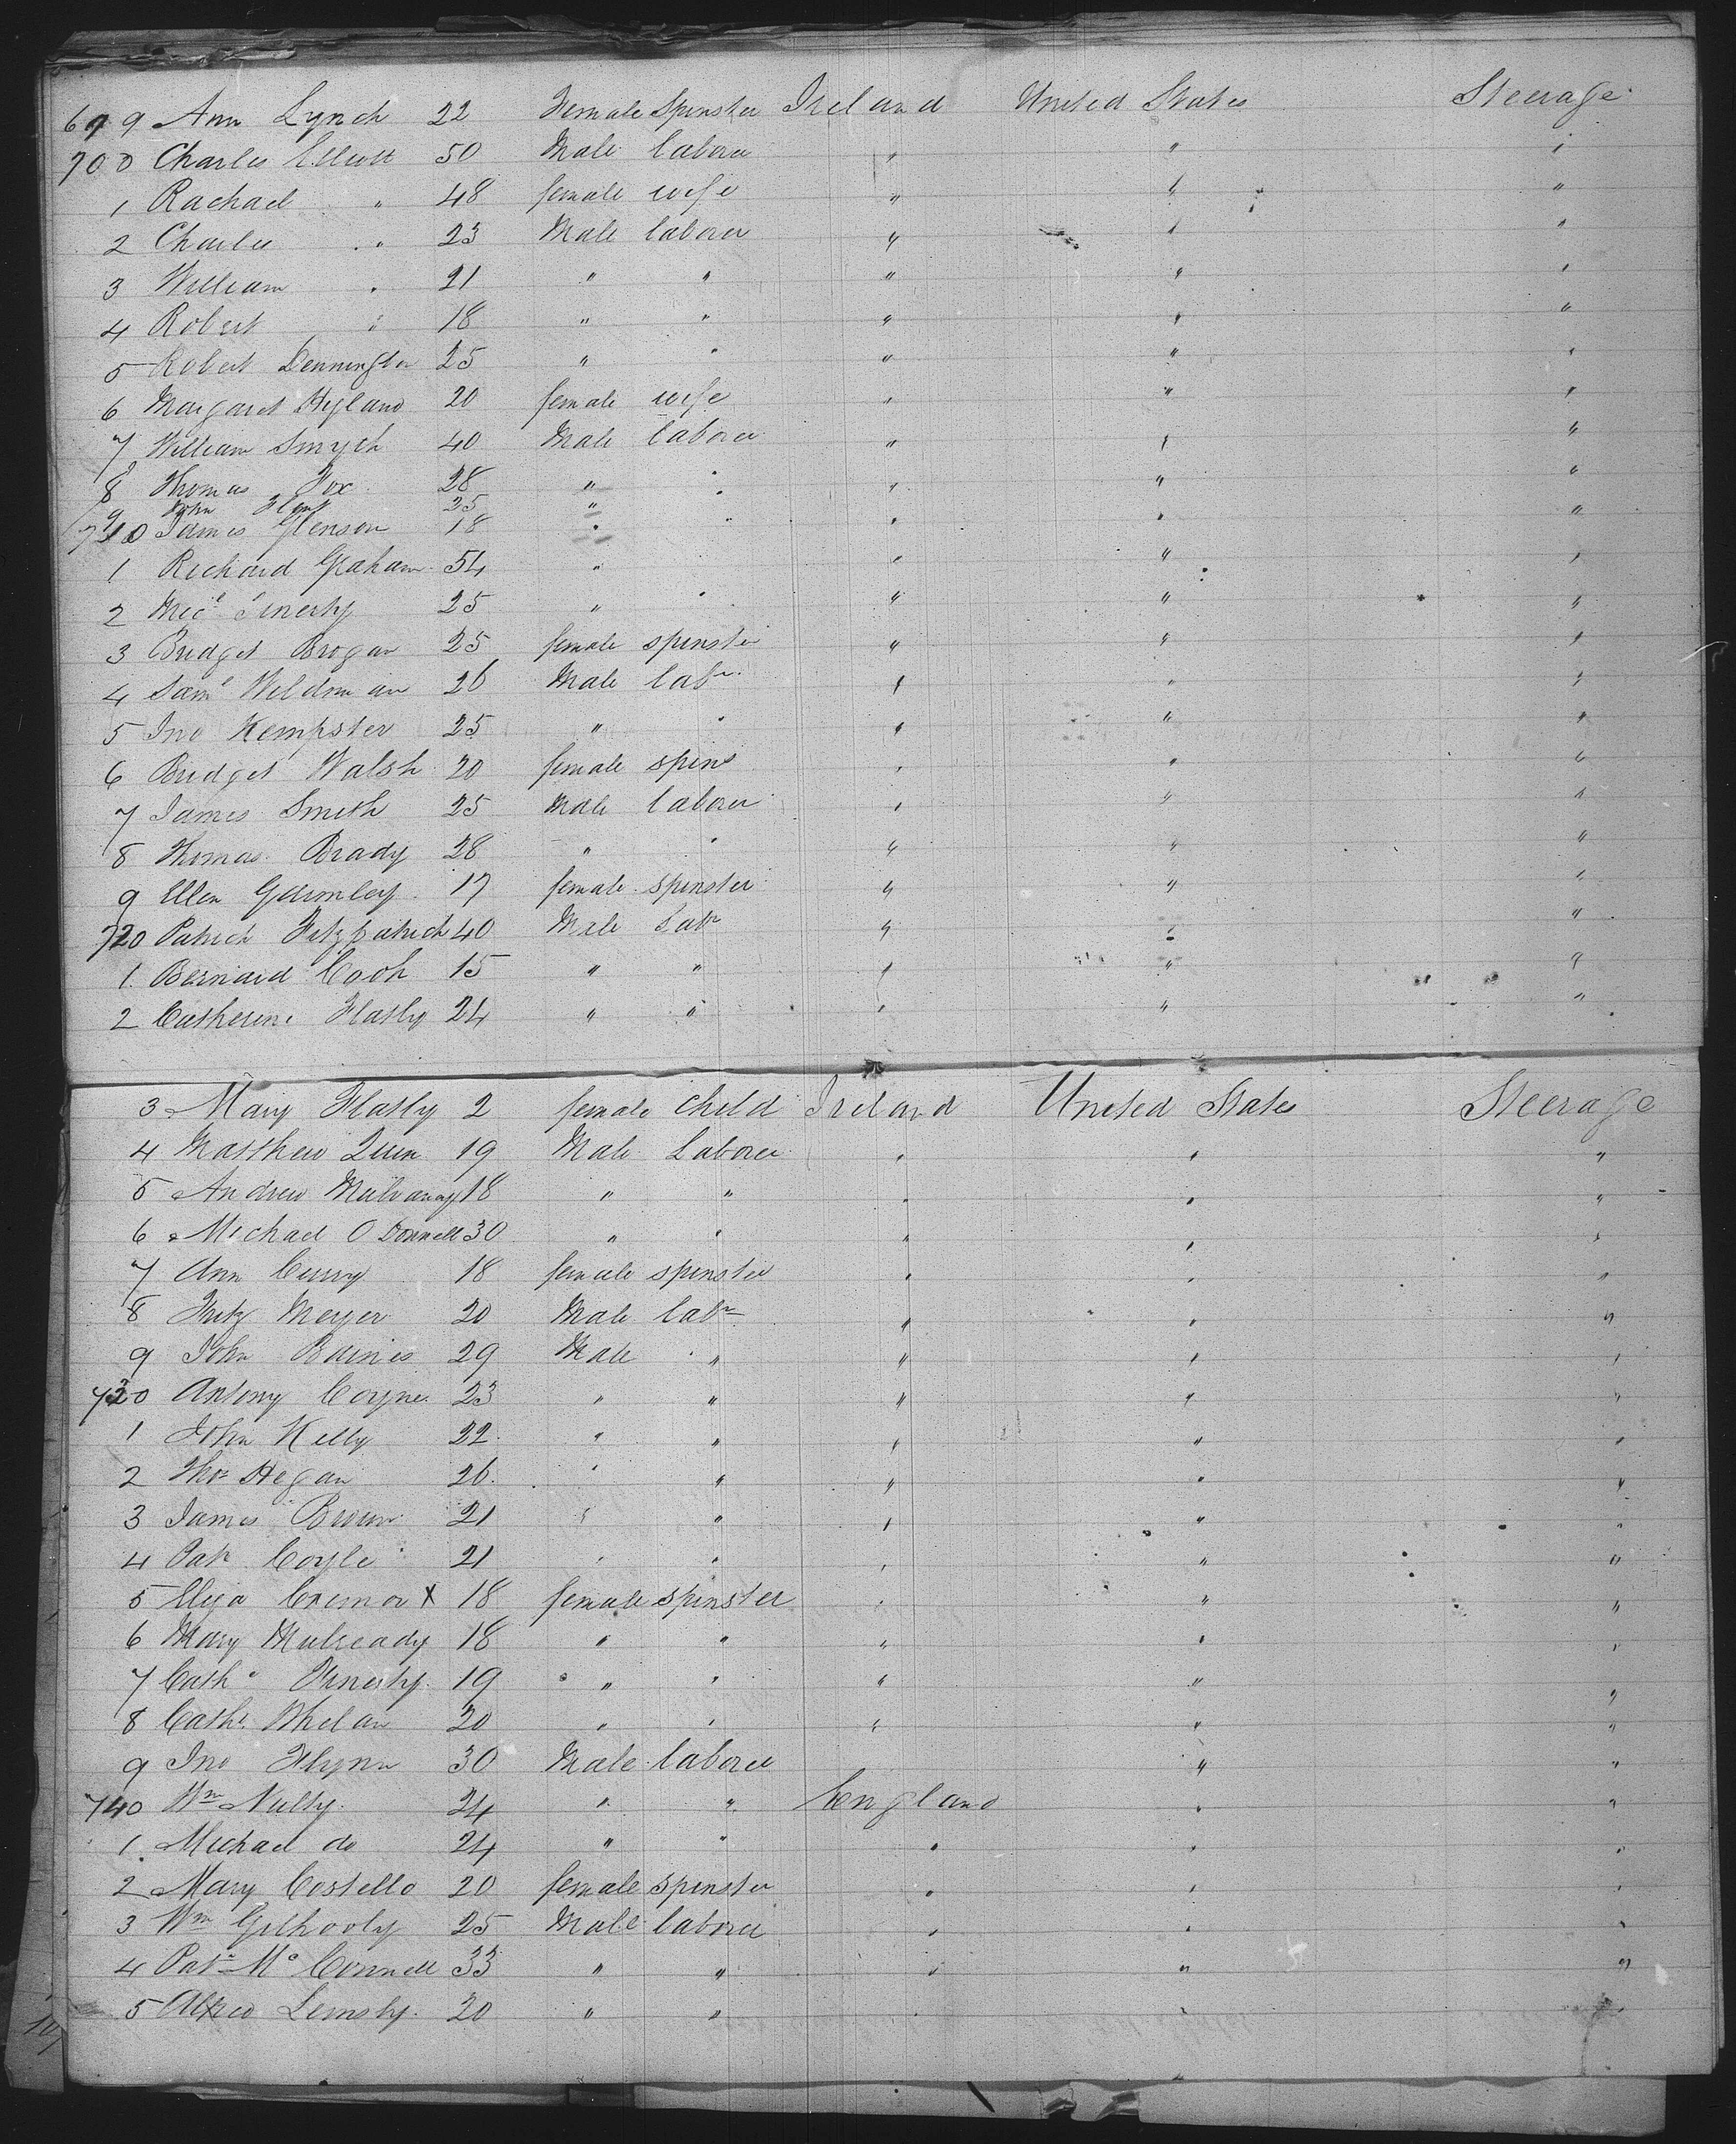 699 Ann Lynch 22 Female Spinster Ireland United States Steerage
700 Charles Elliott 50 Male laborer " " "
1 Rachael " 48 female wife " " "
2 Charles " 23 Male laborer " " "
3 William " 21 " " " " "
4 Robert " 18 " " " " "
5 Robert Dennington 25 " " " " "
6 Margaret Hyland 20 female wife " " "
7 William Smyth 40 Male laborer " " "
8 Thomas Fox 28 " " " " "
9 John 25 "
710 James Glenson 18 " " " " "
1 Richard Graham 54 " " " "
2 Micl 25 " " " " "
3 Bridget Brogan 25 female spinster " " "
4 Saml Wildman 26 Male labr " " "
5 Jno Kempster 25 " " " " "
6 Bridget Walsh 20 female spins " " "
7 James Smith 25 Male laborer " " "
8 Thomas Brady 28 " " " " "
9 Ellen Gaumley 17 female spinster " " "
720 Patrick Fitzpatrick 40 Male Labr " " "
1 Bernard Cook 15 " " " " "
2 Catherine Flatly 24 " " " " "
3 Mary Flatly 2 female child Ireland United States Steerage
4 Matthew Quin 19 Male Laborer " " "
5 Andrew Mulvanay 18 " " " " "
6 Michael O Donnell 30 " " " " "
7 Ann Curry 18 female spinster " " "
8 Fritz Meyer 20 Male labr " " "
9 John Baines 29 Male " " " "
730 Antony Coyne 23 " " " " "
1 John Kelly 22 " " " " "
2 Thos Hegan 26 " " " " "
3 James Brown 21 " " " " "
4 Patk Coyle 21 " " " " "
5 Eliza X 18 female spinster " " "
6 Mary Mulready 18 " " " " "
7 Cathe 19 " " " " "
8 Cathe Whelan 20 " " " " "
9 Jno Flynn 30 Male laborer " "
740 Wm Nulty 24 " " England " "
1 Michael do 24 " " " " "
2 Mary Costello 20 female spinster " " "
3 Wm Gilhooly 25 Male laborer " " "
4 Patk Mc Connell 33 " " " " "
5 Alfred Lemsly 20 " " " " "